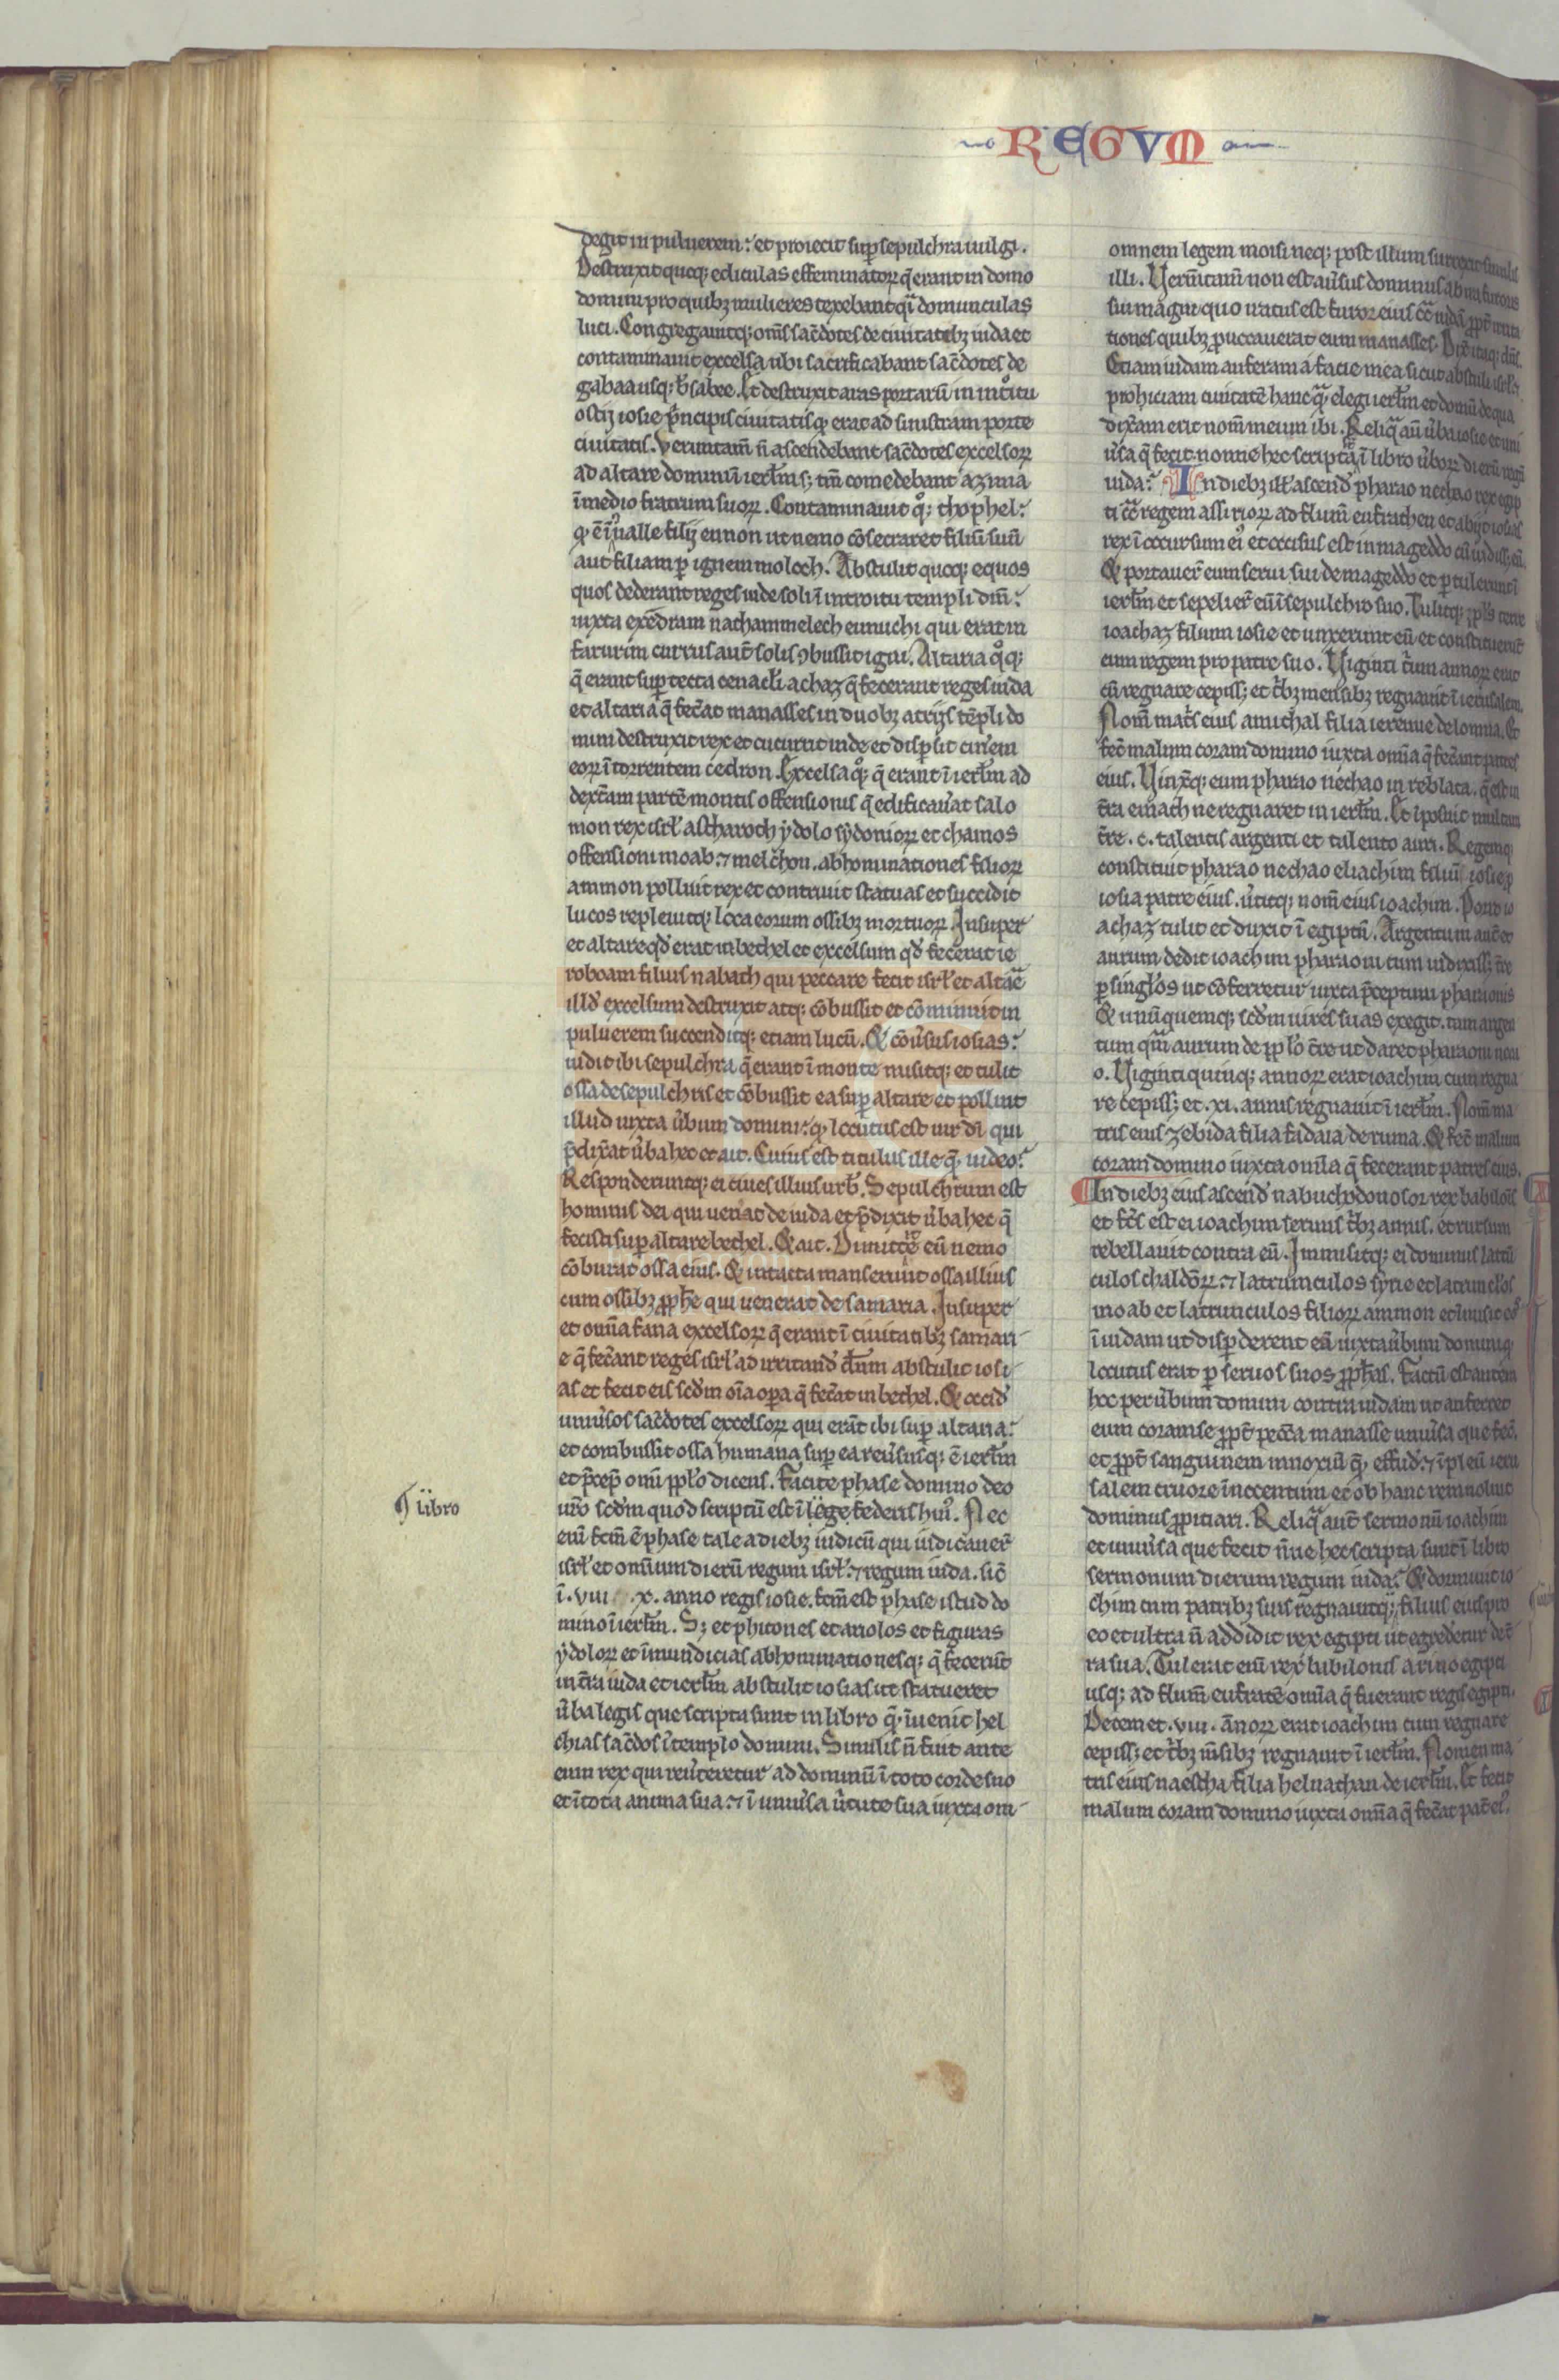 REGVM
degit in puluerem: et proiecit sup̄ sepulchra uulgi.
Destruxit quoq; ediculas effeminatoꝝ q̄ erant in domo
domini pro quibꝫ mulieres texebant q̄i domunculas
luci. Congregauitq; om̄s sac̄dotes de ciuitatibꝫ iuda et
contaminauit excelsa ubi sacrificabant sac̄dotes de
gabaa usq; b̄sabee. Et destruxit aras portarū in int̊itu
ostij iosie p̄ncipis ciuitatis q̨ erat ad sinistram porte
ciuitatis. Veruntam̄ n̄ ascendebant sac̄dotes excelsoꝝ
ad altare domini ī ierl̄m s; tm̄ comedebant azima
ī medio fratrum suoꝝ. Contaminauit q̊; thophel:
q̨ ē ī ualle filij ennon ut nemo cōsecraret filiū suū
aut filiam ꝑ ignem moloch. Abstulit quoq; equos
quos dederant reges iude soli ī introitu templi dn̄i:
iuxta exedram nathanmelech eunuchi qui erat in
farurim currus aut̄ solis ꝯbussit igni. Altaria q̊q;
q̄ erant sup̄ tecta cenacli achaz q̄ fecerant reges iuda
et altaria q̄ fec̄at manasses in duobꝫ atrijs tēpli do
mini destruxit rex et cucurrit inde et disp̄sit cin̄em
eoꝝ ī torrentem cedron. Excelsa q̊; q̄ erant ī ierl̄m ad
dext̄am partē montis offensionis q̄ edificau̾at salo
mon rex isrl̄ astharoth ydolo sydonioꝝ et chamos
offensioni moab: ⁊ melchon. abhominationes filioꝝ
ammon polluit rex et contriuit statuas et succidit
lucos repleuitq; loca eorum ossibꝫ mortuoꝝ. Insuper
et altare qd̄ erat in bethel et excelsum qd̄ fecerat ie
roboam filius nabath qui peccare fecit isrl̄ et altāe
illd̄ excelsum destruxit atq; cōbussit et cōminuit in
puluerem succenditq; etiam lucū. Et cōu̾sus iosias:
uidit ibi sepulchra q̄ erant ī monte misitq; et tulit
ossa de sepulchris et cōbussit ea sup̄ altare et polluit
illud iuxta u̾bum domini: q̨ locutus est uir di qui
p̄dix̄at u̾ba hec et ait. Cuius est titulus ille q̨ uideo:
Responderuntq; ei ciues illius urb̄. Sepulchrum est
hominis dei qui uen̄at de iuda et p̄dixit u̾ba hec q̄
fecisti sup̄ altare bethel. Et ait. Dimitte eū nemo
cōburat ossa eius. Et intacta manserunt ossa illius
cum ossibꝫ ꝓph̄e qui uenerat de samaria. Insuper
et om̄a fana excelsoꝝ q̄ erant ī ciuitatibꝫ samari
e q̄ fec̄ant reges isrl̄ ad irritand̄ dn̄m abstulit iosi
as et fecit eis scd̄m oīa oꝑa q̄ fec̄at in bethel. Et occid̄
uniu̾sos sac̄dotes excelsoꝝ qui erāt ibi sup̄ altaria:
et combussit ossa humana sup̄ ea reu̾susq; ē ierl̄m
et p̄cep̄ omī pp̄lo dicens. Facite phase domino deo
ur̄o scd̄m quod scriptū est ī lege federis hui̾. Nec
¶ libro
eni̅ fcm̄ ē phase tale a diebꝫ iudicū qui iudicauer̄
isrl̄ et omium dierū regum isrl̄: ⁊ regum iuda. sic̄
ī. viii x. anno regis iosie. fcm̄ est phase istud do
mino ī ierl̄m. S; et phitones et ariolos et figuras
ydoloꝝ et īmundicias abhominationesq; q̄ fecerūt
in t̄ra iuda et ierl̄m abstulit iosias ut statueret
u̾ba legis que scripta sunt in libro q̨ īuenit hel
chias sac̄dos ī templo domini. Similis n̄ fuit ante
eum rex qui reu̾teretur ad dominū ī toto corde suo
et ī tota anima sua: ⁊ ī uniu̾sa u̾tute sua iuxta om
omnem legem moisi neq; post illum surrexit similis
illi. Verūtam̄ non est au̾sus dominus ab ira furoris
sui magni quo iratus est furor eius cc̄ iudā ꝓpt̄ irrita
tiones quibꝫ ꝓuocauerat eum manasses. Dixitq; dn̄s.
Etiam iudam auferam a facie mea sicut abstuli isrl̄:
prohiciam ciuitatē hanc q̄ elegi ierl̄m et domū de qua
dix̄am erit nom̄ meum ibi. Reliq̄ aū u̾ba iosie et uni
u̾sa q̄ fecit. nonne hec scripta ī libro u̾boꝝ dierū regū
iuda: In diebꝫ ill̄ ascend̄ pharao nechao rex egip
ti cc̄ regem assirioꝝ ad flum̄ eufraten et abijt iosias
rex ī occursum ei̾ et occisus est in mageddo cū uidiss; eū.
Et portauer̄ eum serui sui de mageddo et ꝑtulerunt ī
ierl̄m et sepelier̄ eū ī sepulchro suo. Tulitq; pp̄ls terre
ioachaz filium iosie et unxerunt eū et constituerūt
eum regem pro patre suo. Viginti t̄ium annoꝝ erat
cū regnare cepiss; et t̄bꝫ mensibꝫ regnauit ī ierusalem.
Nom̄ mat̄s eius amithal filia ieremie de lomna. Et
fec̄ malum coram domino iuxta om̄a q̄ fec̄ant patres
eius. Vinx̄q; eum pharao nechao in reblata. q̄ est in
t̄ra emach ne regnaret in ierl̄m. Et īposuit multam
t̄re. c. talentis argenti et talento auri. Regemq;
constituit pharao nechao eliachim filiū iosie ꝓ
iosia patre eius. u̾titq; nom̄ eius ioachim. Porro io
achaz tulit et duxit ī egiptū. Argentum aut̄ et
aurum dedit ioachim pharaoni cum indixiss; t̄re
ꝑ singl̄os ut cōferretur iuxta p̄ceptum pharaonis
Et unūquemq; scd̄m uires suas exegit. tam argen
tum qm̄ aurum de pp̄lo t̄re ut daret pharaoni necha
o. Viginti quinq; annoꝝ erat ioachim cum regna
re cepiss; et. xi. annis regnauit ī ierl̄m. Nom̄ ma
tris eius zebida filia fadaia de ruma. Et fec̄ malum
coram domino iuxta omīa q̄ fecerant patres eius.
In diebꝫ eius ascend̄ nabuchodonosor rex babilōis
et fc̄s est ei ioachim seruus t̄bꝫ annis. et rursum
rebellauit contra eū. Immisitq; ei dominus latrū
culos chaldōꝝ: ⁊ latrunculos syrie et latruncl̄os
moab et latrunculos filioꝝ ammon et īmisit eos
ī iudam ut disꝑderent eū iuxta u̾bum domini q̨
locutus erat ꝑ seruos suos ꝓph̄as. Factū est autem
hoc per u̾bum domini contra iudam ut auferret
eum coram se ꝓpt̄ pecc̄a manasse uniu̾sa que fec̄
et ꝓpt̄ sanguinem innoxiū q̨ effud̄: ⁊ īpleū ieru
salem cruore īnocentum et ob hanc rem noluit
dominus ꝓpitiari. Reliq̄ aut̄ sermonū ioachim
et uniu̾sa que fecit n̄ne hec scripta sunt ī libro
sermonum dierum regum iuda. Et dormiuit io
chim cum patribꝫ suis regnauitq; filius eius pro
eo et ultra n̄ addidit rex egipti ut egredetur de t̄
ra sua. Tulerat eni̅ rex babilonis a riuo egipti
usq; ad flum̄ eufratē om̄a q̄ fuerant regis egipti.
Decem et. viii. an̄oꝝ erat ioachim cum regnare
cepiss; et t̄bꝫ m̄sibꝫ regnauit ī ierl̄m. Nomen ma
tris eius naestha filia helnathan de ierl̄m. Et fecit
malum coram domino iuxta om̄a q̄ fec̄at pat̄ ei̾.